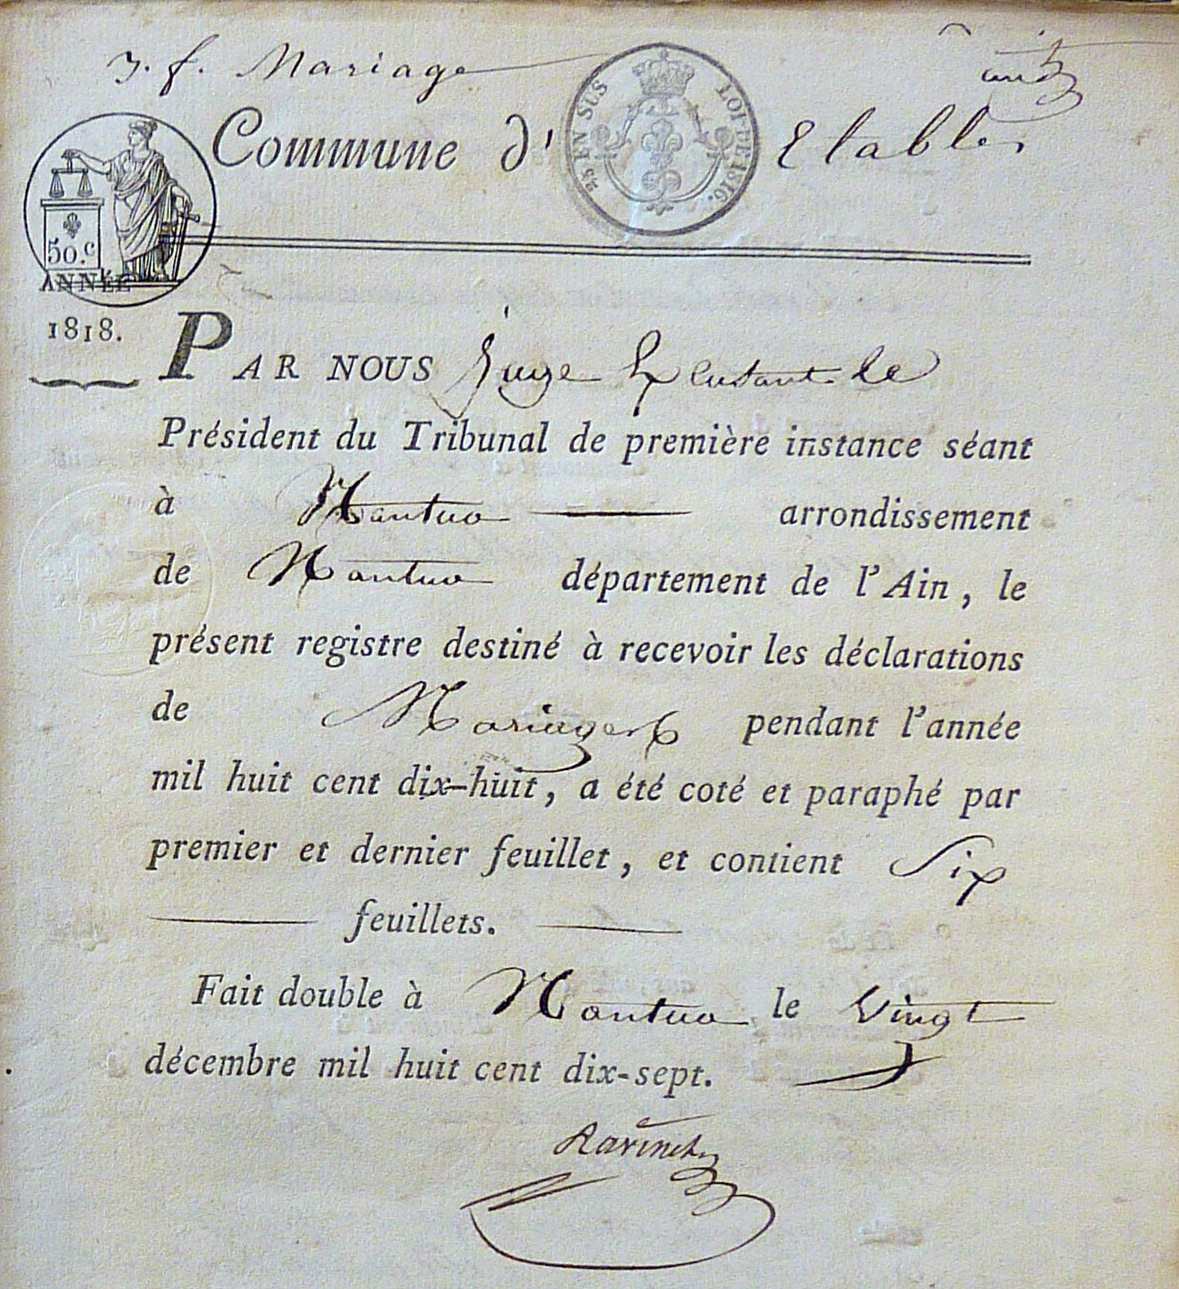 f. Mariage
Commune d' Etables
25 EN SUS LOI DE 1816.
50.c
ANNÉE
1818.
PAR NOUS Juge Excusant le
Président du Tribunal de première instance séant
à Nantua arrondissement
de Nantua département de l'Ain, le
présent registre destiné à recevoir les déclarations
de Mariages pendant l'année
mil huit cent dix-huit, a été coté et paraphé par
premier et dernier feuillet, et contient Six
feuillets.
Fait double à Nantua le Vingt
décembre mil huit cent dix-sept.